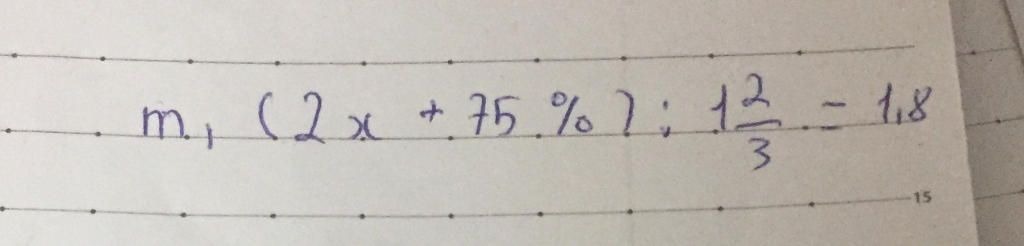 m, (2x + 75%) : 1 2/3 = 1,8
15